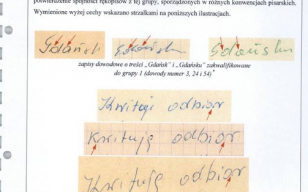 potwierdzenie spójności rękopisów z tej grupy, sporządzonych w różnych konwencjach pisarskich.
Wymienione wyżej cechy wskazano strzałkami na poniższych ilustracjach.
Gdańsk Gdańsk Gdańsku
zapisy dowodowe o treści „Gdańsk” i „Gdańsku” zakwalifikowane
do grupy 1 (dowody numer 3, 24 i 54)
Kwituję odbiór
Kwituję odbiór
Kwituję odbiór